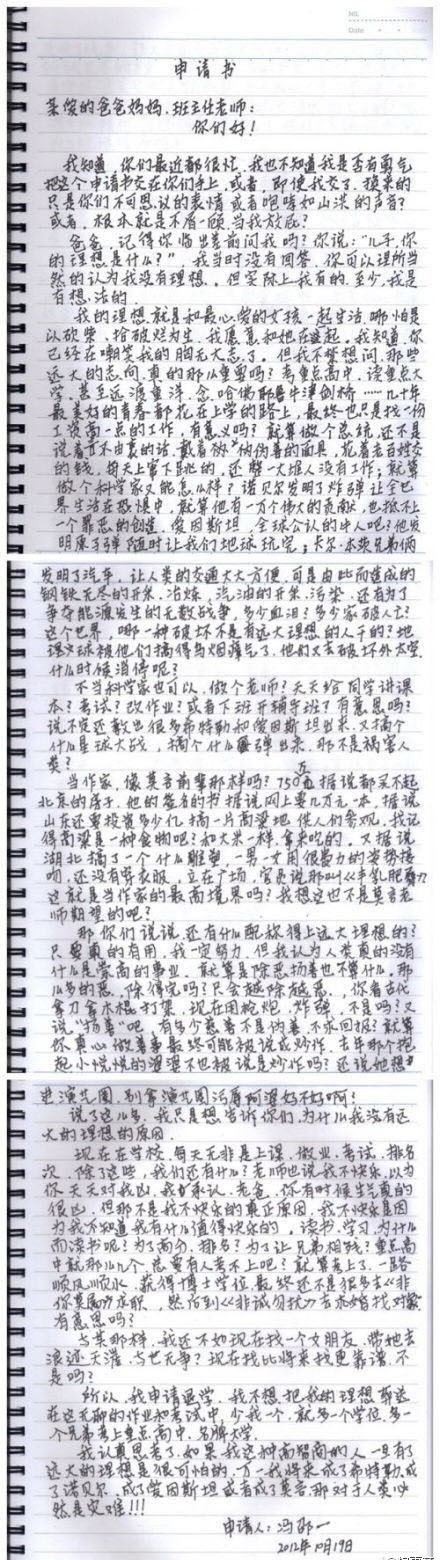 NO.
Date
申请书
亲爱的爸爸妈妈、班主任老师：
你们好！
我知道，你们最近都很忙，我也不知道我是否有勇气
把这个申请书交在你们手上，或者，即使我交了，换来的
只是你们不可思议的表情或者咆哮如山洪的声音？
或者，根本就是不屑一顾，当我放屁？
爸爸，记得你临出差前问我吗？你说：“儿子，你
的理想是什么？”我当时没有回答，你可以理所当
然的认为我没有理想。但实际上我有的，至少，我是
有想法的。
我的理想就是和最心爱的女孩一起生活，哪怕是
以砍柴、拾破烂为生，我愿意和她在一起。我知道，你
已经在嘲笑我的胸无大志了。但我不禁想问，那些
远大的志向，真的那么重要吗？考重点高中，读重点大
学，甚至远渡重洋，念哈佛耶鲁牛津剑桥……几十年
最美好的青春都花在上学的路上，最终也只是找一份
工资高一点的工作，有意义吗？就算做个总统，还不是
说着言不由衷的话，戴着伪善的面具，花着老百姓交
的钱，每天上窜下跳的，还整一大堆人没有工作；就算
做个科学家又能怎么样？诺贝尔发明了炸弹让全世
界生活在恐惧中，就算他有一万个伟大的贡献，也抵不上
一个罪恶的创造。爱因斯坦，全球公认的牛人吧？他发
明原子弹随时让我们地球玩完；卡尔·本茨兄弟俩
发明了汽车，让人类的交通大大方便，可是由此而造成的
钢铁无尽的开采、冶炼，汽油的开采、污染，还有为了
争夺能源发生的无数战争，多少血泪？多少家破人亡？
这个世界，哪一种破坏不是有远大理想的人干的？地
球被他们搞得乌烟瘴气了，他们又去破坏外太空，
什么时候消停呢？
不当科学家也可以，做个老师？天天给同学讲课
本？考试？改作业？或者下班开辅导班？有意思吗？
说不定还教出很多希特勒和爱因斯坦出来，又搞个
什么星球大战，搞个什么弹出来，那不是祸害人
类？
当作家，像莫言前辈那样吗？750万据说都买不起
北京的房子，他的签名的书据说网上要几万元一本，据说
山东还要投资多少亿搞一片高粱地，供人们参观，我记
得高粱是一种食物吧？和大米一样，拿来吃的。又据说
湖北搞了一个什么雕塑，一男一女用很费力的姿势接
吻，还没有穿衣服，立在广场，官员说那叫《丰乳肥臀》，
这就是当作家的最高境界吗？我想这也不是莫言老
师期望的吧？
那你们说说，还有什么配称得上远大理想的？
只要真的有用，我一定努力，但我认为人类真的没有
什么是崇高的事业，就算是除恶扬善也不算什么，那
么多的恶，除得完吗？只会越除越恶，你看古代
拿刀拿木棍打架，现在用枪炮、炸弹，不是吗？又
说“扬善”吧，有多少慈善不是伪善，不求回报？就算
你真心做善事最终可能被说成炒作，去年那个抱
起小悦悦的婆婆不也被说是炒作吗？还说她想
进演艺圈，别拿演艺圈污辱阿婆好不好啊！
说了这么多，我只是想告诉你们，为什么我没有远
大的理想的原因。
现在在学校，每天无非是上课、做业、考试、排名
次，除了这些，我们还有什么？老师也说我不快乐，以为
你天天对我凶，我承认，老爸，你有时候生气真的
很凶，但那不是我不快乐的真正原因，我不快乐是因
为我不知道我有什么值得快乐的。读书，学习，为什么
而读书呢？为了高分，排名？为了让兄弟相残？重点高
中就那么几个，总要有人考不上吧？就算考上了，一路
顺风顺水，获得博士学位，最终还不是很多去《非
你莫属》求职，然后到《非诚勿扰》去求婚找对象，
有意思吗？
与其那样，我还不如现在找一个女朋友，带她去
浪迹天涯，与世无争？现在找比将来找更靠谱，不
是吗？
所以，我申请退学，我不想把我的理想葬送
在这无聊的作业和考试中，少我一个，就多一个学位，多一
个兄弟考上重点高中、名牌大学。
我认真思考了，如果我这种高智商的人一旦有了
远大的理想是很可怕的，万一我将来成了希特勒，成
了诺贝尔，成了爱因斯坦或者成了莫言，那对于人类必
然是灾难!!!
申请人：冯邵一
2012年10月19日